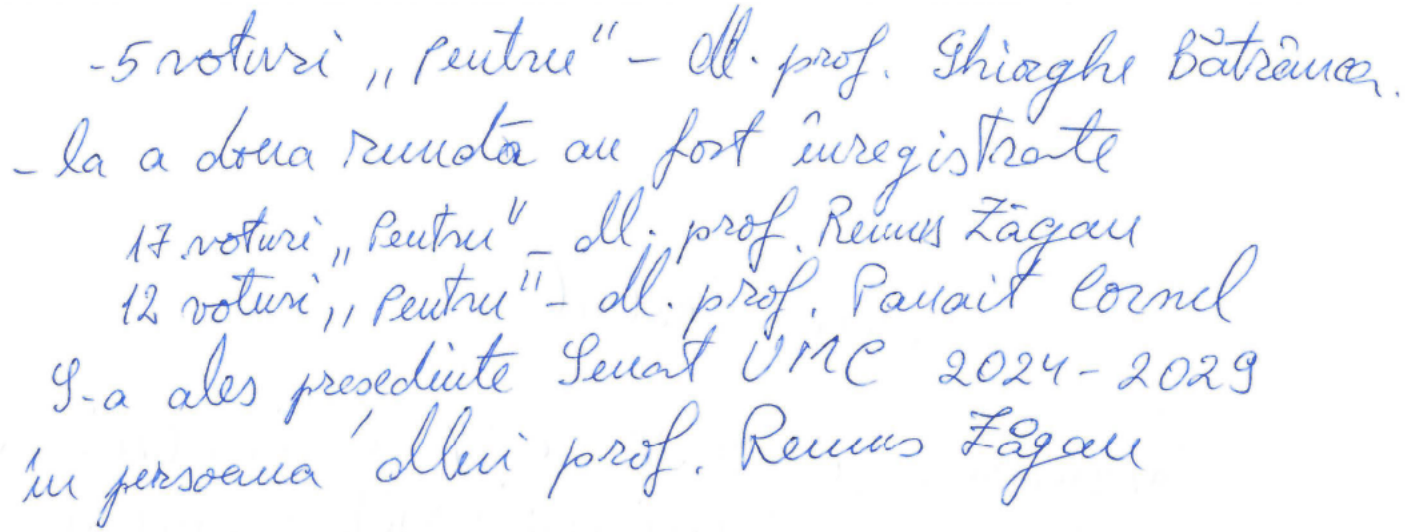 - 5 voturi „Pentru" - dl. prof. Ghiorghe Bătrânca.
- la a doua rundă au fost înregistrate
17 voturi „Pentru" - dl. prof. Remus Zăgan
12 voturi „Pentru" - dl. prof. Panait Cornel
S-a ales președinte Senat UMC 2024-2029
în persoana dlui prof. Remus Zăgan